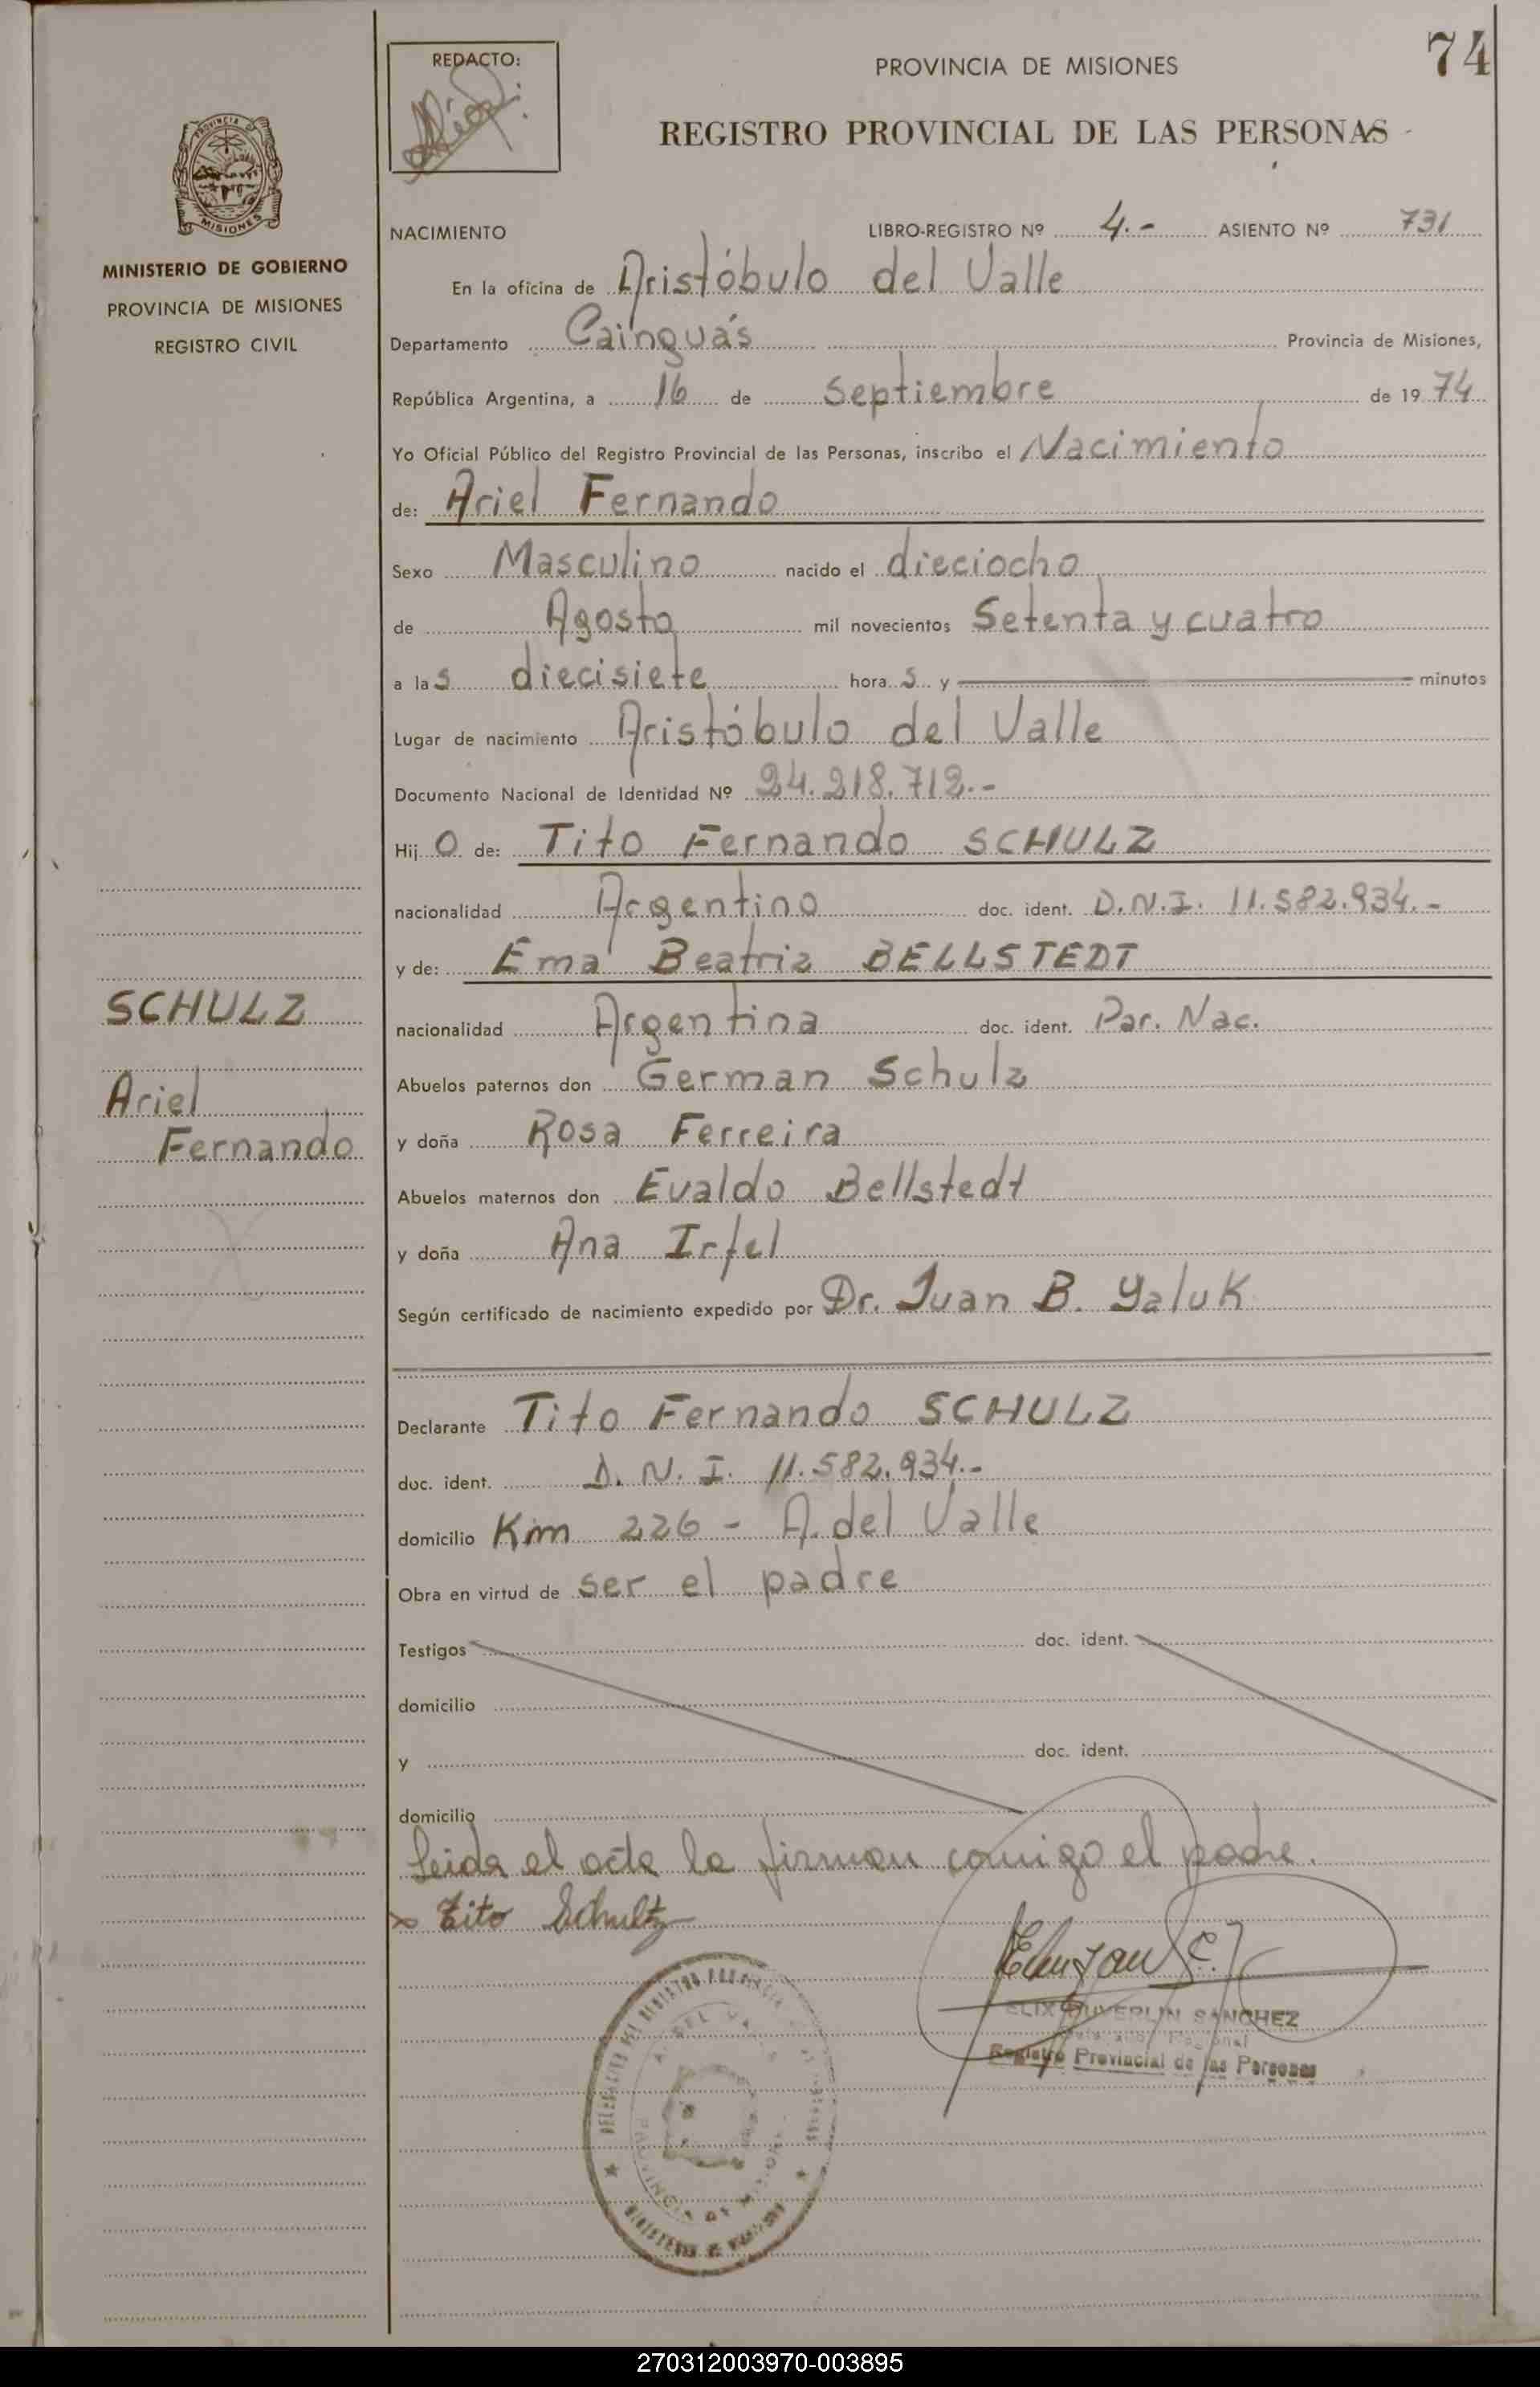 74
REDACTO:
PROVINCIA DE MISIONES
REGISTRO PROVINCIAL DE LAS PERSONAS
PROVINCIA DE
MISIONES
MINISTERIO DE GOBIERNO
PROVINCIA DE MISIONES
REGISTRO CIVIL
SCHULZ
Ariel
Fernando
NACIMIENTO LIBRO-REGISTRO Nº 4.- ASIENTO Nº 731
En la oficina de Aristóbulo del Valle
Departamento Cainguás Provincia de Misiones,
República Argentina, a 16 de Septiembre de 1974
Yo Oficial Público del Registro Provincial de las Personas, inscribo el Nacimiento
de: Ariel Fernando
Sexo Masculino nacido el dieciocho
de Agosto mil novecientos Setenta y cuatro
a las diecisiete horas y minutos
Lugar de nacimiento Aristóbulo del Valle
Documento Nacional de Identidad Nº 24.218.712.-
Hijo de: Tito Fernando SCHULZ
nacionalidad Argentino doc. ident. D.N.I. 11.582.934.-
y de: Ema Beatriz BELLSTEDT
nacionalidad Argentina doc. ident. Par. Nac.
Abuelos paternos don German Schulz
y doña Rosa Ferreira
Abuelos maternos don Evaldo Bellstedt
y doña Ana Irfel
Según certificado de nacimiento expedido por Dr. Juan B. Yaluk
Declarante Tito Fernando SCHULZ
doc. ident. D.N.I. 11.582.934.-
domicilio Km 226 - A. del Valle
Obra en virtud de ser el padre
Testigos doc. ident.
domicilio
y doc. ident.
domicilio
Leida el acta la firman comigo el padre.
x Tito Schultz
SANCHEZ
Registro Provincial de las Personas
270312003970-003895